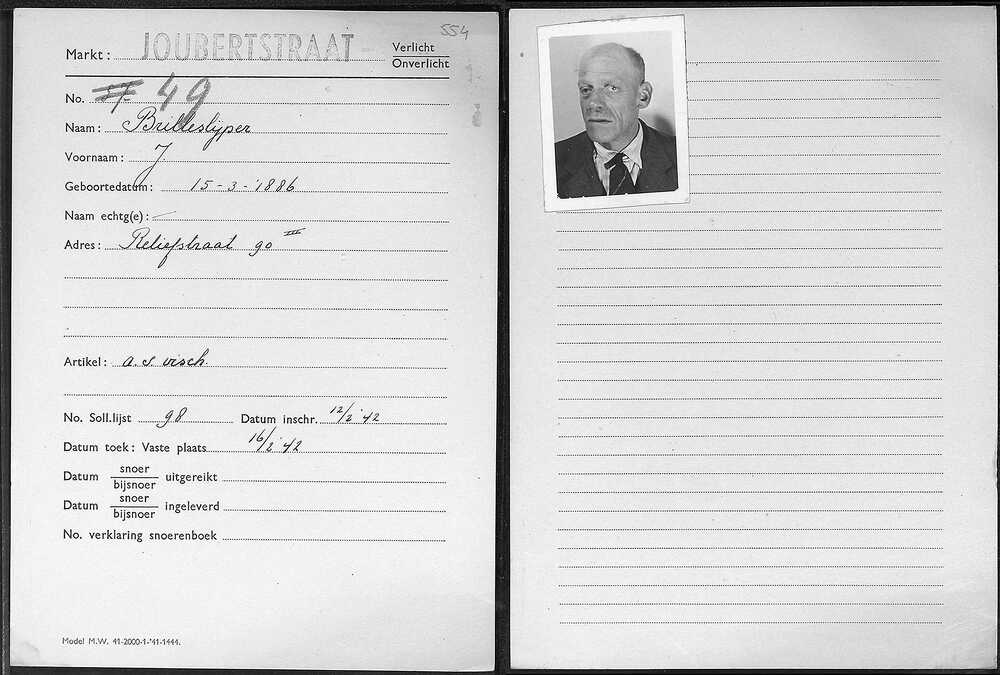 554
Markt: JOUBERTSTRAAT Verlicht
Onverlicht
No. 49
Naam: Brilleslijper
Voornaam: J
Geboortedatum: 15-3-1886
Naam echtg(e): —
Adres: Reliefstraat 90 III
Artikel: a.s. visch
No. Soll.lijst 98 Datum inschr. 12/2 '42
Datum toek: Vaste plaats 16/2 '42
Datum snoer/bijsnoer uitgereikt
Datum snoer/bijsnoer ingeleverd
No. verklaring snoerenboek
Model M.W. 41-2000-1-'41-1444.